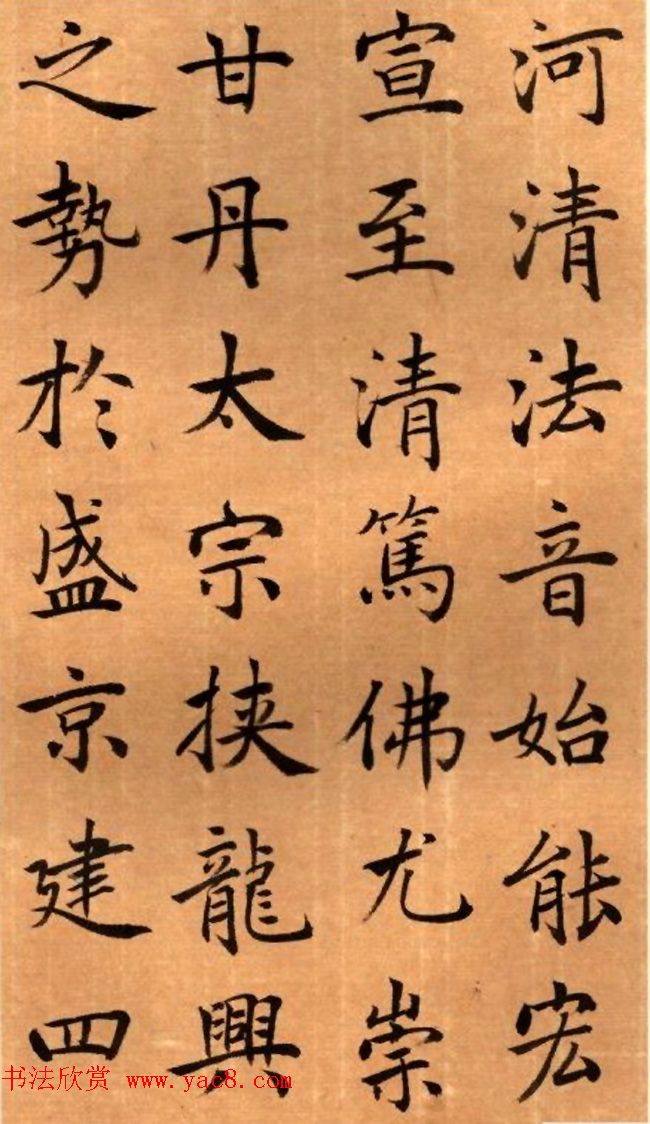 河清法音始能宏
宣至清篤佛尤崇
甘丹太宗挟龍興
之勢於盛京建四
书法欣赏 www.yac8.com